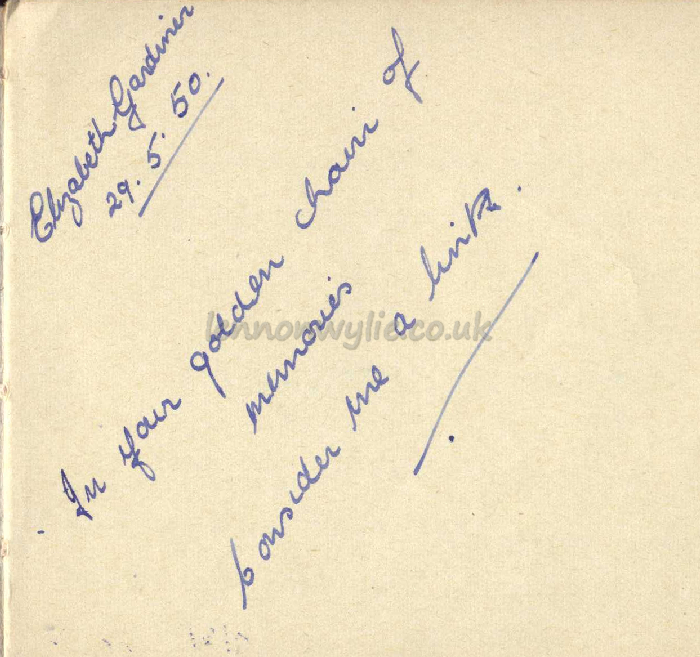 Elizabeth Gardiner
29. 5. 50.
In your golden chain of
memories
Consider me a link.
lennonwylie.co.uk